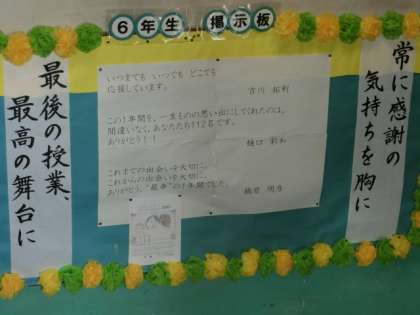 6年生 掲示板
常に感謝の
気持ちを胸に
いつまでも いつでも どこでも
応援しています。
この1年間を、一生ものの思い出にしてくれたのは、
間違いなく、あなたたち112名です。
ありがとう!!
樋口
これまでの出会いを大切に、
これからの出会いを大切に、
ありがとう。"最幸"の1年間でした。
最後の授業、
最高の舞台に